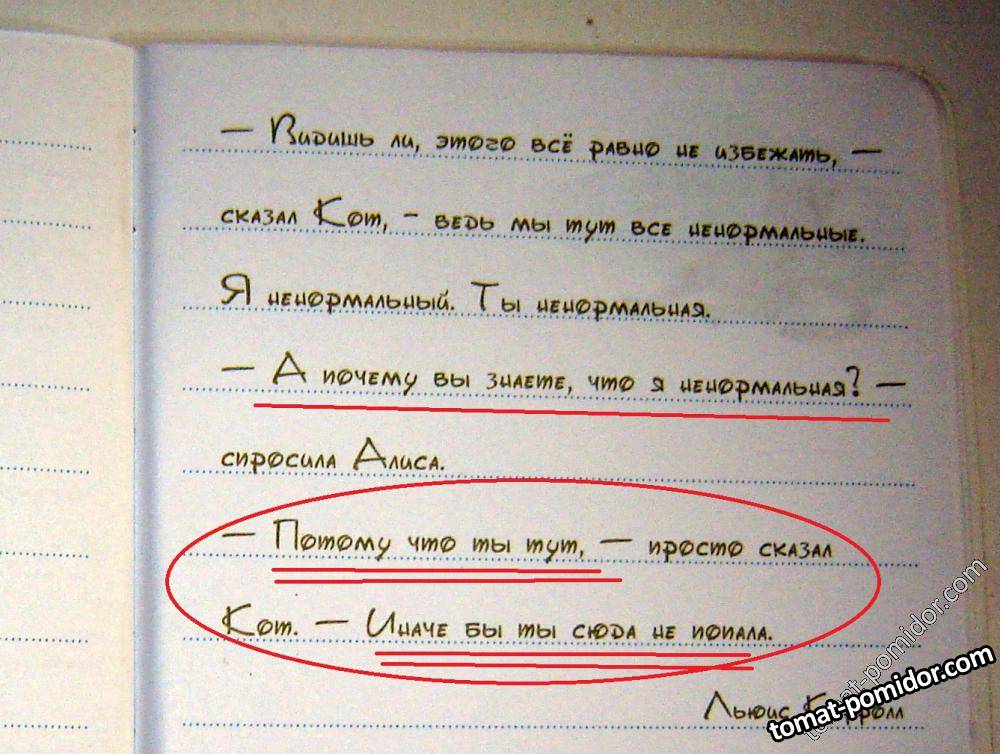 — Видишь ли, этого всё равно не избежать, —
сказал Кот, - ведь мы тут все ненормальные.
Я ненормальный. Ты ненормальная.
— А почему вы знаете, что я ненормальная? —
спросила Алиса.
— Потому что ты тут, — просто сказал
Кот. — Иначе бы ты сюда не попала.
Льюис Кэрролл
tomat-pomidor.com
tomat-pomidor.com